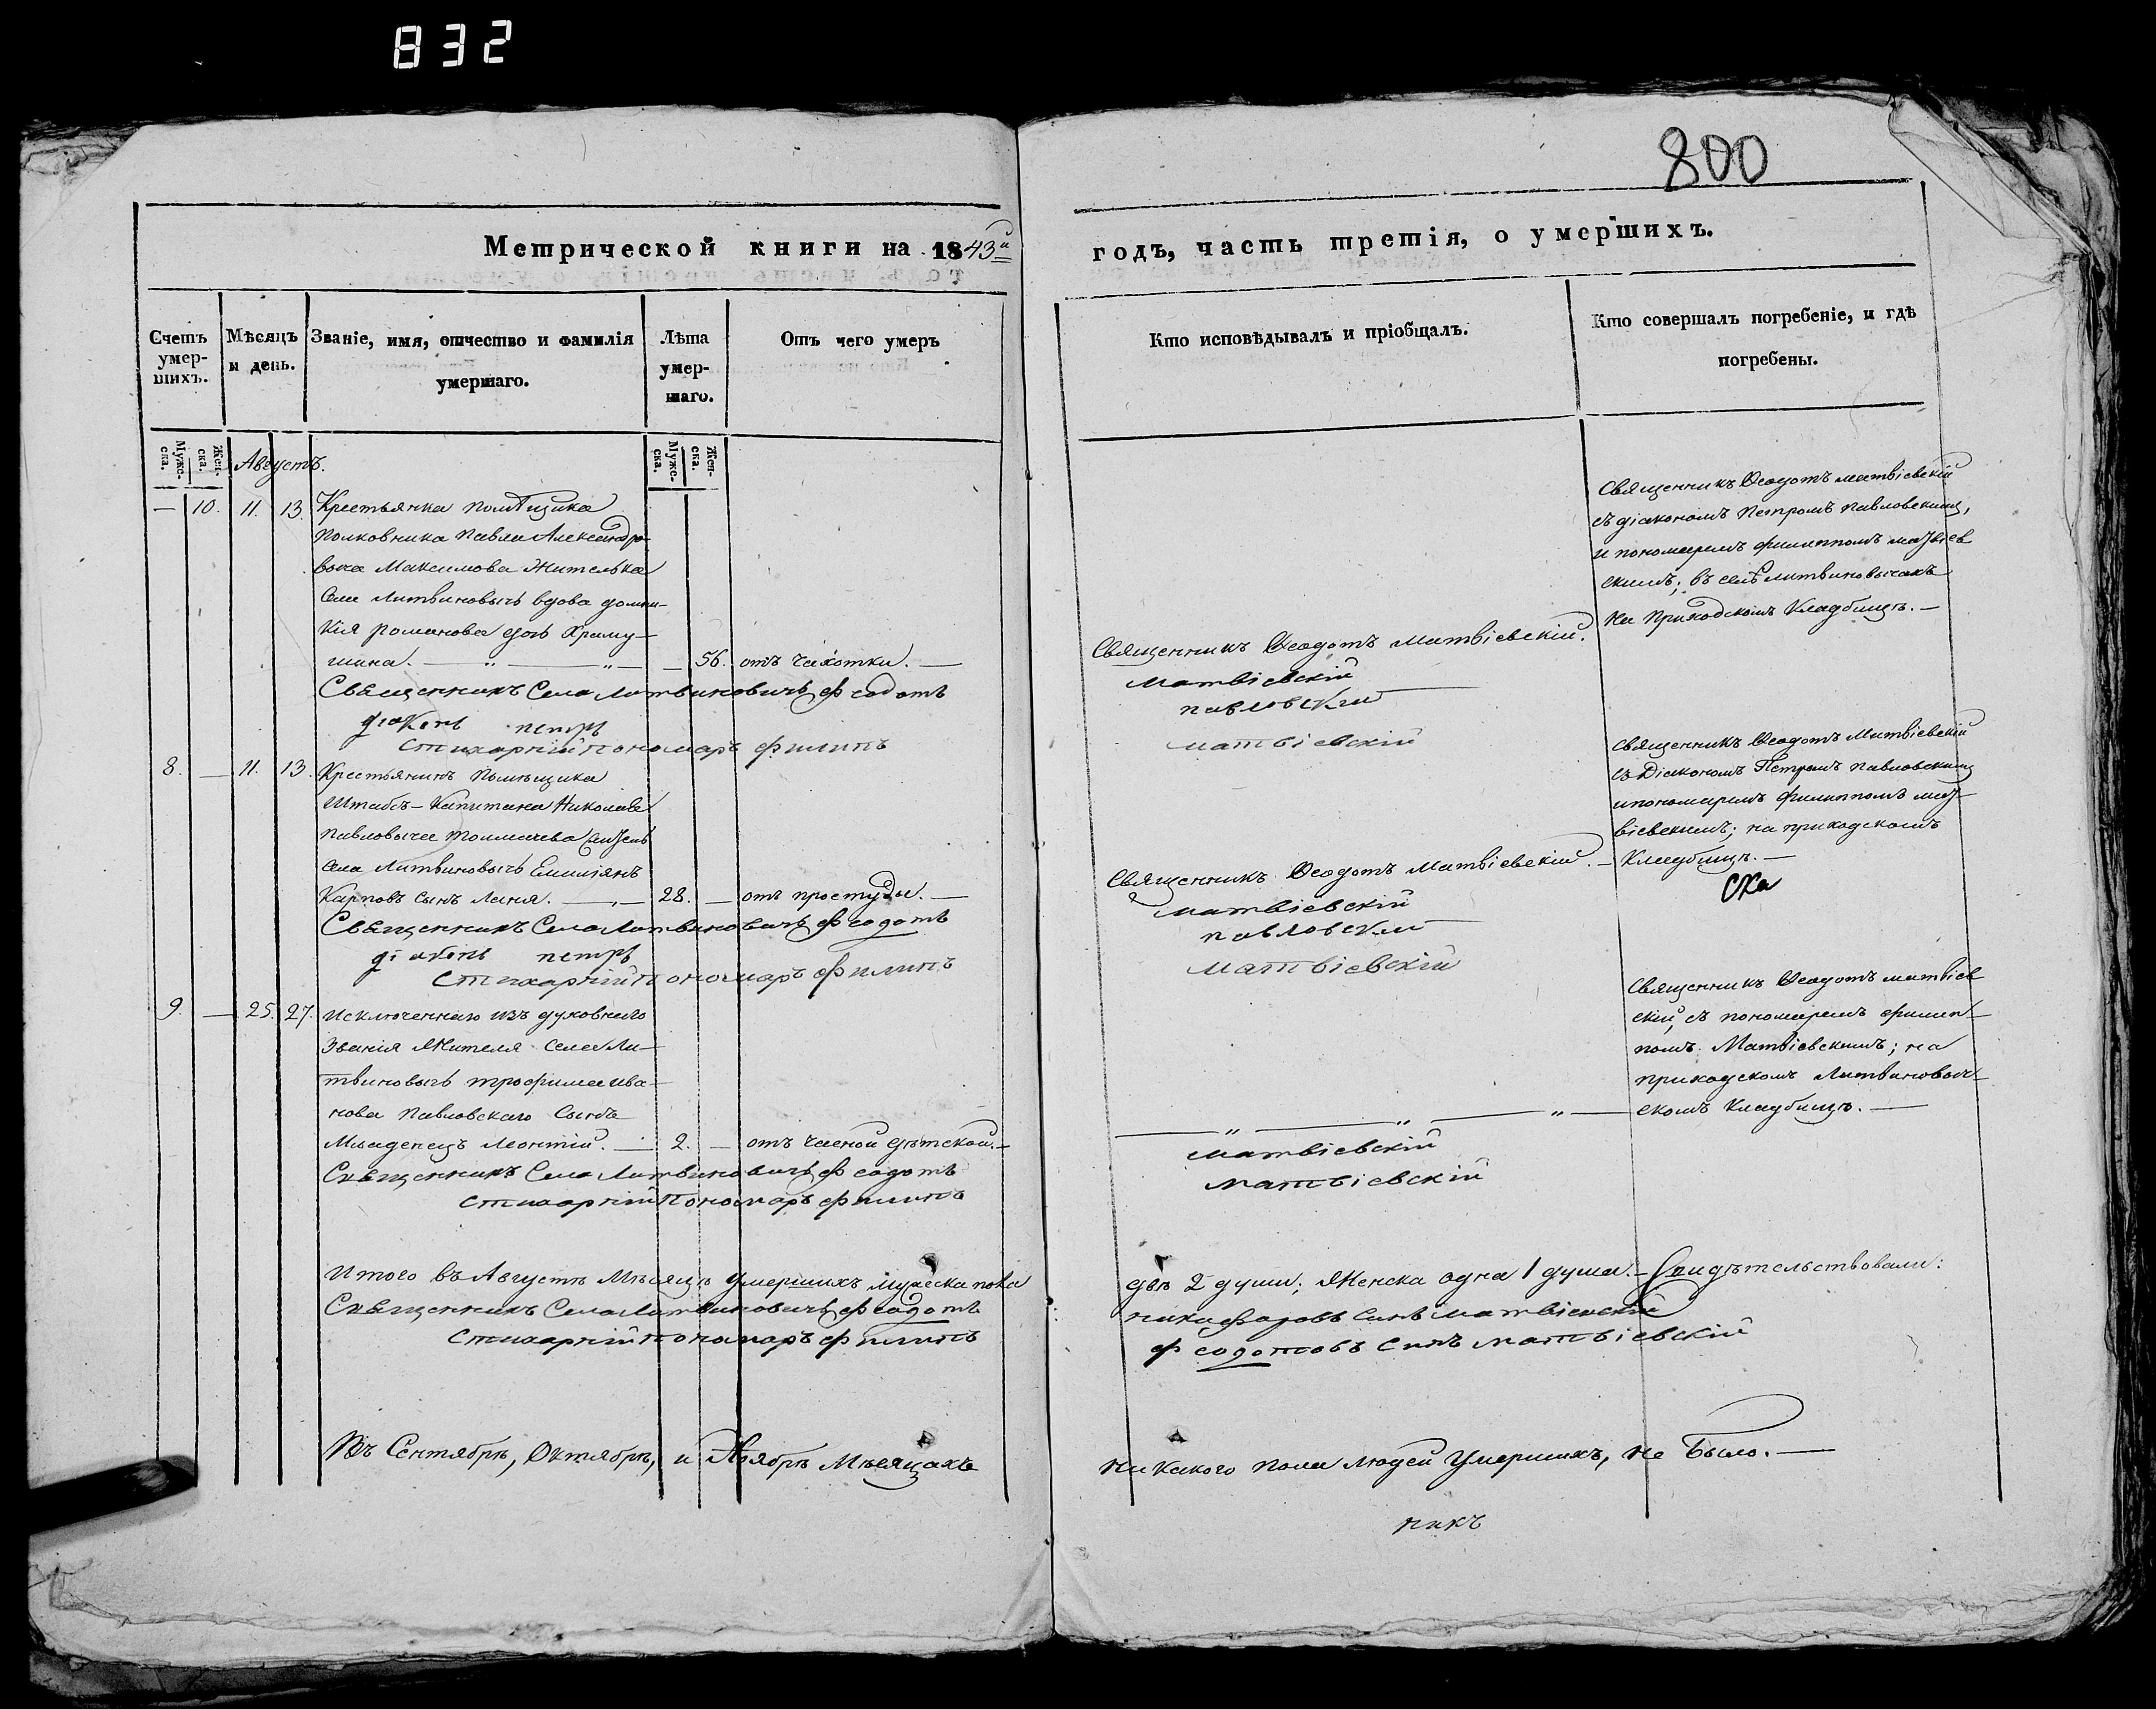 832
800
Метрической книги на 1843й
годъ, часть третія, о умершихъ.
Счетъ умер-
шихъ.
Мѣсяцъ
и день.
Званіе, имя, отчество и фамилія
умершаго.
Лѣта
умер-
шаго.
Отъ чего умеръ
Кто исповѣдывалъ и пріобщалъ.
Кто совершалъ погребеніе, и гдѣ
погребены.
Муже-
ска.
Жен-
ска.
Муже-
ска.
Жен-
ска.
Августъ.
— 10. 11. 13. Крестьянка помѣщика
полковника Павла Александро-
вича Максимова жителька
села Литвиновычъ вдова домни-
кія романова дочь Храму-
шина. — „ — „ — — 56. отъ чахотки. —
Священникъ Села Литвиновичъ Феодотъ
діаконъ петръ
Стихарній пономаръ филипъ
Священникъ Ѳеодотъ Матвіевскій.
Матвіевскій
павловскій
матвіевскій
Священникъ Ѳеодотъ матвіевскій
съ діакономъ Петромъ Павловскимъ,
и пономаремъ филиппомъ матвіев
скимъ; въ селѣ литвиновычахъ
на приходскомъ кладбищѣ. —
8. — 11. 13. Крестьянинъ помѣщика
Штабсъ-Капитана Николая
Павловыча Толмачева
села Литвиновычъ Емиліянъ
Карповъ сынъ Ланя. — 28. — отъ простуды. —
Священникъ Села Литвиновичъ Феодотъ
діаконъ петръ
Стихарній пономаръ филипъ
Священникъ Ѳеодотъ Матвіевскій. —
матвіевскій
павловскій
матвіевскій
Священникъ Ѳеодотъ Матвіевскій
съ Діакономъ Петромъ Павловскимъ
и пономаремъ филиппомъ мат-
віевскимъ; на приходскомъ
Кладбищѣ. —
9. — 25. 27. Исключеннаго изъ духовнаго
званія жителя села Ли-
твиновычъ трофима ива-
нова Павловскаго сынъ
Младенецъ Леонтій. — 2. — отъ
Священникъ Села Литвиновичъ Феодотъ
Стихарній Пономаръ филипъ
— „ — „ — „ —
матвіевскій
матвіевскій
Священникъ Ѳеодотъ матвіев
скій, съ пономаремъ филип-
помъ Матвіевскимъ; на
приходскомъ Литвиновыч-
скомъ кладбищѣ. —
Итого въ Августѣ Мѣсяцѣ умершихъ мужеска пола
двѣ 2 души; Женска одна 1 душа. — Свидѣтельствовали:
Священникъ Села Литвиновичъ Феодотъ
никифоровъ Синъ матвіевскій
Стихарній пономаръ филипъ
феодотовъ Синъ матвіевскій
Въ Сентябрѣ, Октябрѣ, и Ноябрѣ Мѣсяцахъ
никакого пола людей умершихъ, не было. —
никъ